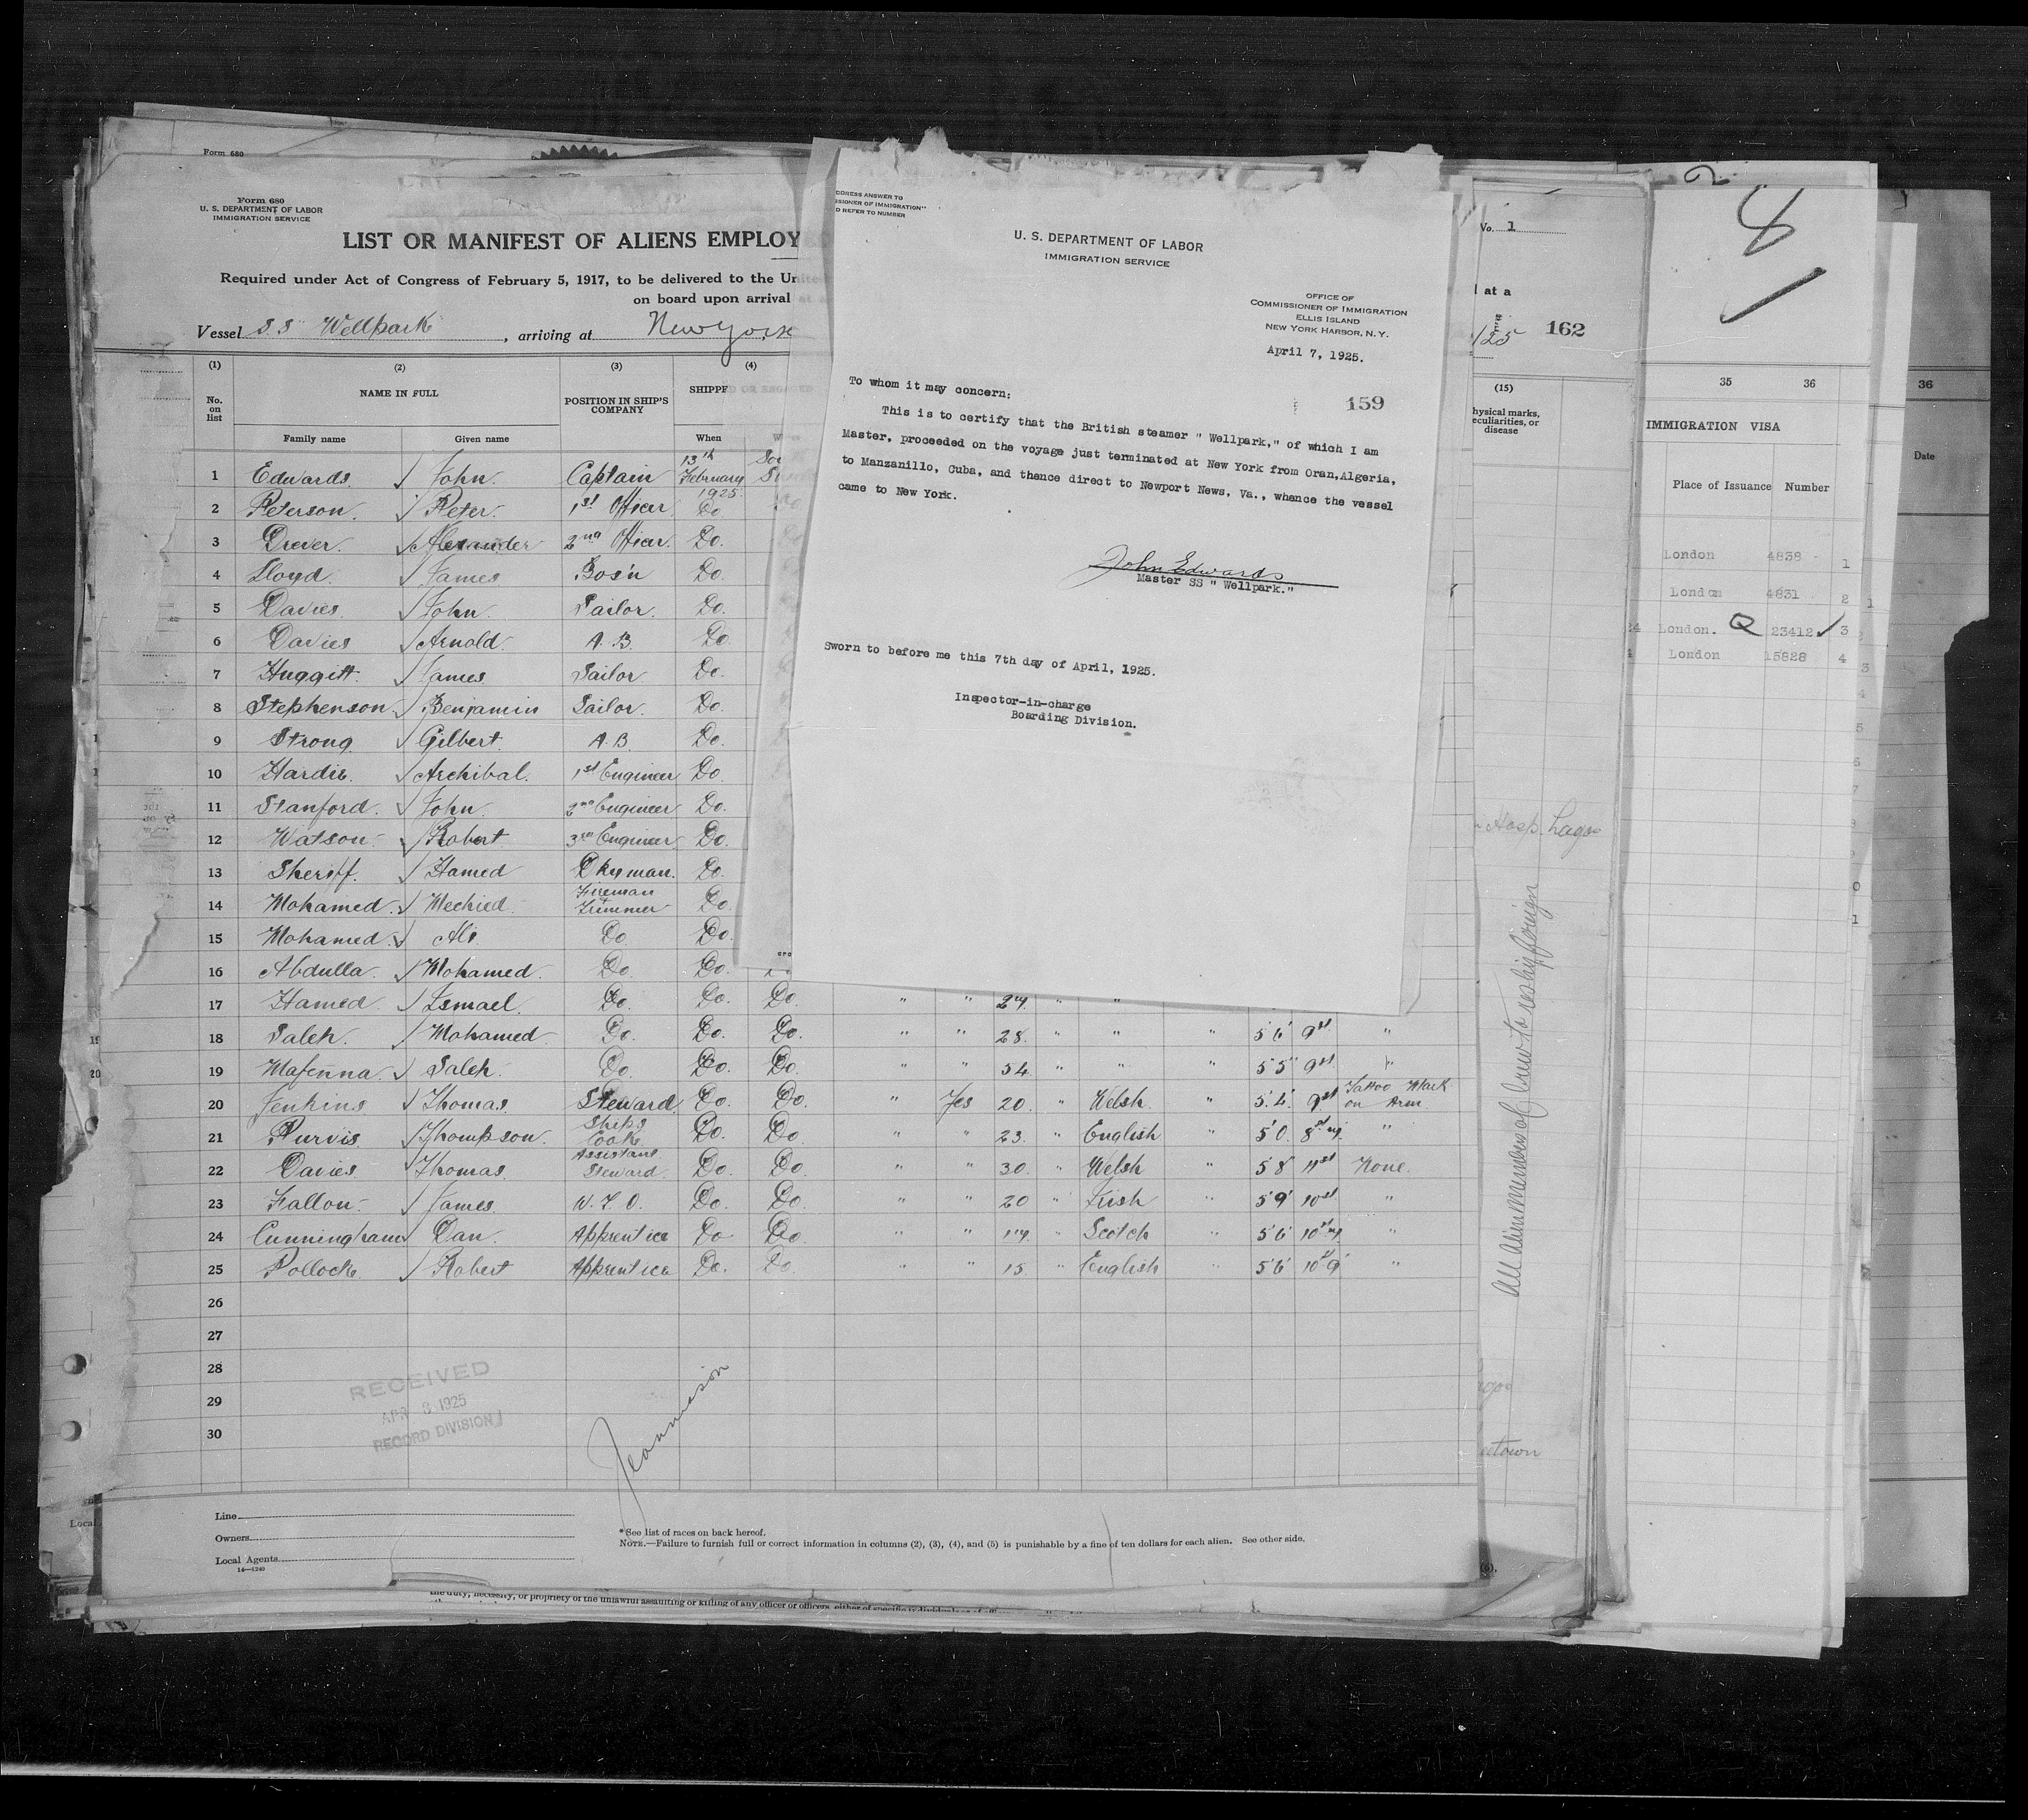 Form 680
Form 680
U. S. DEPARTMENT OF LABOR
IMMIGRATION SERVICE
LIST OR MANIFEST OF ALIENS EMPLOY
Required under Act of Congress of February 5, 1917, to be delivered to the Unite
on board upon arrival at a
Vessel S.S Wellpark, arriving at New York
(1) (2) (3) (4)
No. on list NAME IN FULL POSITION IN SHIP'S COMPANY SHIPPED OR ENGAGED
Family name Given name When
1 Edwards. John. Captain 13th February 1925
2 Peterson. Peter. 1st Officer Do
3 Drever. Alexander 2nd Officer. Do.
4 Lloyd. James Bos'n Do.
5 Davies John. Sailor. Do.
6 Davies Arnold. A.B. Do.
7 Huggitt. James. Sailor Do.
8 Stephenson. Benjamin Sailor. Do.
9 Strong Gilbert. A.B. Do.
10 Hardie. Archibal. 1st Engineer Do.
11 Stanford. John. 2nd Engineer Do.
12 Watson. Robert 3rd Engineer. Do.
13 Sheriff. Hamed Dkyman. Do.
14 Mohamed. Mechied. Fireman + Trimmer Do.
15 Mohamed. Ali. Do. Do.
16 Abdulla. Mohamed. Do. Do.
17 Hamed. Ismael. Do. Do. Do. " " 27. " "
18 Saleh. Mohamed. Do. Do. Do. " " 28. " " " 5'6' 9st "
19 Mafenna. Saleh. Do. Do. Do. " " 54 " " " 5'5" 9st "
20 Jenkins. Thomas. Steward. Do. Do. " Yes 20. " Welsh. " 5.6. 9st Tattoo Mark on Arm
21 Purvis. Thompson. Ships Cook. Do. Do. " " 23. " English " 5'0. "
22 Davies Thomas. Assistant Steward. Do. Do. " " 30. " Welsh " 5'8 11st None.
23 Fallon. James. W.T.O. Do. Do. " " 20 " Irish " 5'9' 10st "
24 Cunningham Dan. Apprentice Do Do. " " 17. " Scotch " 5'6' "
25 Pollock. Robert Apprentice Do. Do. " " 15. " English " 5'6' "
26
27
28
29
30
RECEIVED
APR 8 1925
RECORD DIVISION
Jeannison
Line
Owners
Local Agents
14—1240
*See list of races on back hereof.
NOTE.—Failure to furnish full or correct information in columns (2), (3), (4), and (5) is punishable by a fine of ten dollars for each alien. See other side.
the duty, necessity, or propriety of the unlawful assaulting or killing of any officer or officers, either of specific individuals or of
DDRESS ANSWER TO
SSIONER OF IMMIGRATION"
D REFER TO NUMBER
U. S. DEPARTMENT OF LABOR
IMMIGRATION SERVICE
OFFICE OF
COMMISSIONER OF IMMIGRATION
ELLIS ISLAND
NEW YORK HARBOR, N. Y.
April 7, 1925.
To whom it may concern:
159
This is to certify that the British steamer " Wellpark," of which I am
Master, proceeded on the voyage just terminated at New York from Oran,Algeria,
to Manzanillo, Cuba, and thence direct to Newport News, Va., whence the vessel
came to New York.
John Edwards
Master SS " Wellpark."
Sworn to before me this 7th day of April, 1925.
Inspector-in-charge
Boarding Division.
No. 1
at a
/25 162
(15)
hysical marks,
eculiarities, or
disease
Hosp. Lagos
All Alien Members of Crew to reship foreign
etown
8
35 36
IMMIGRATION VISA
Place of Issuance Number
London 4838 1
London 4831 2
24 London. Q 23412 3
London 15828 4
36
Date